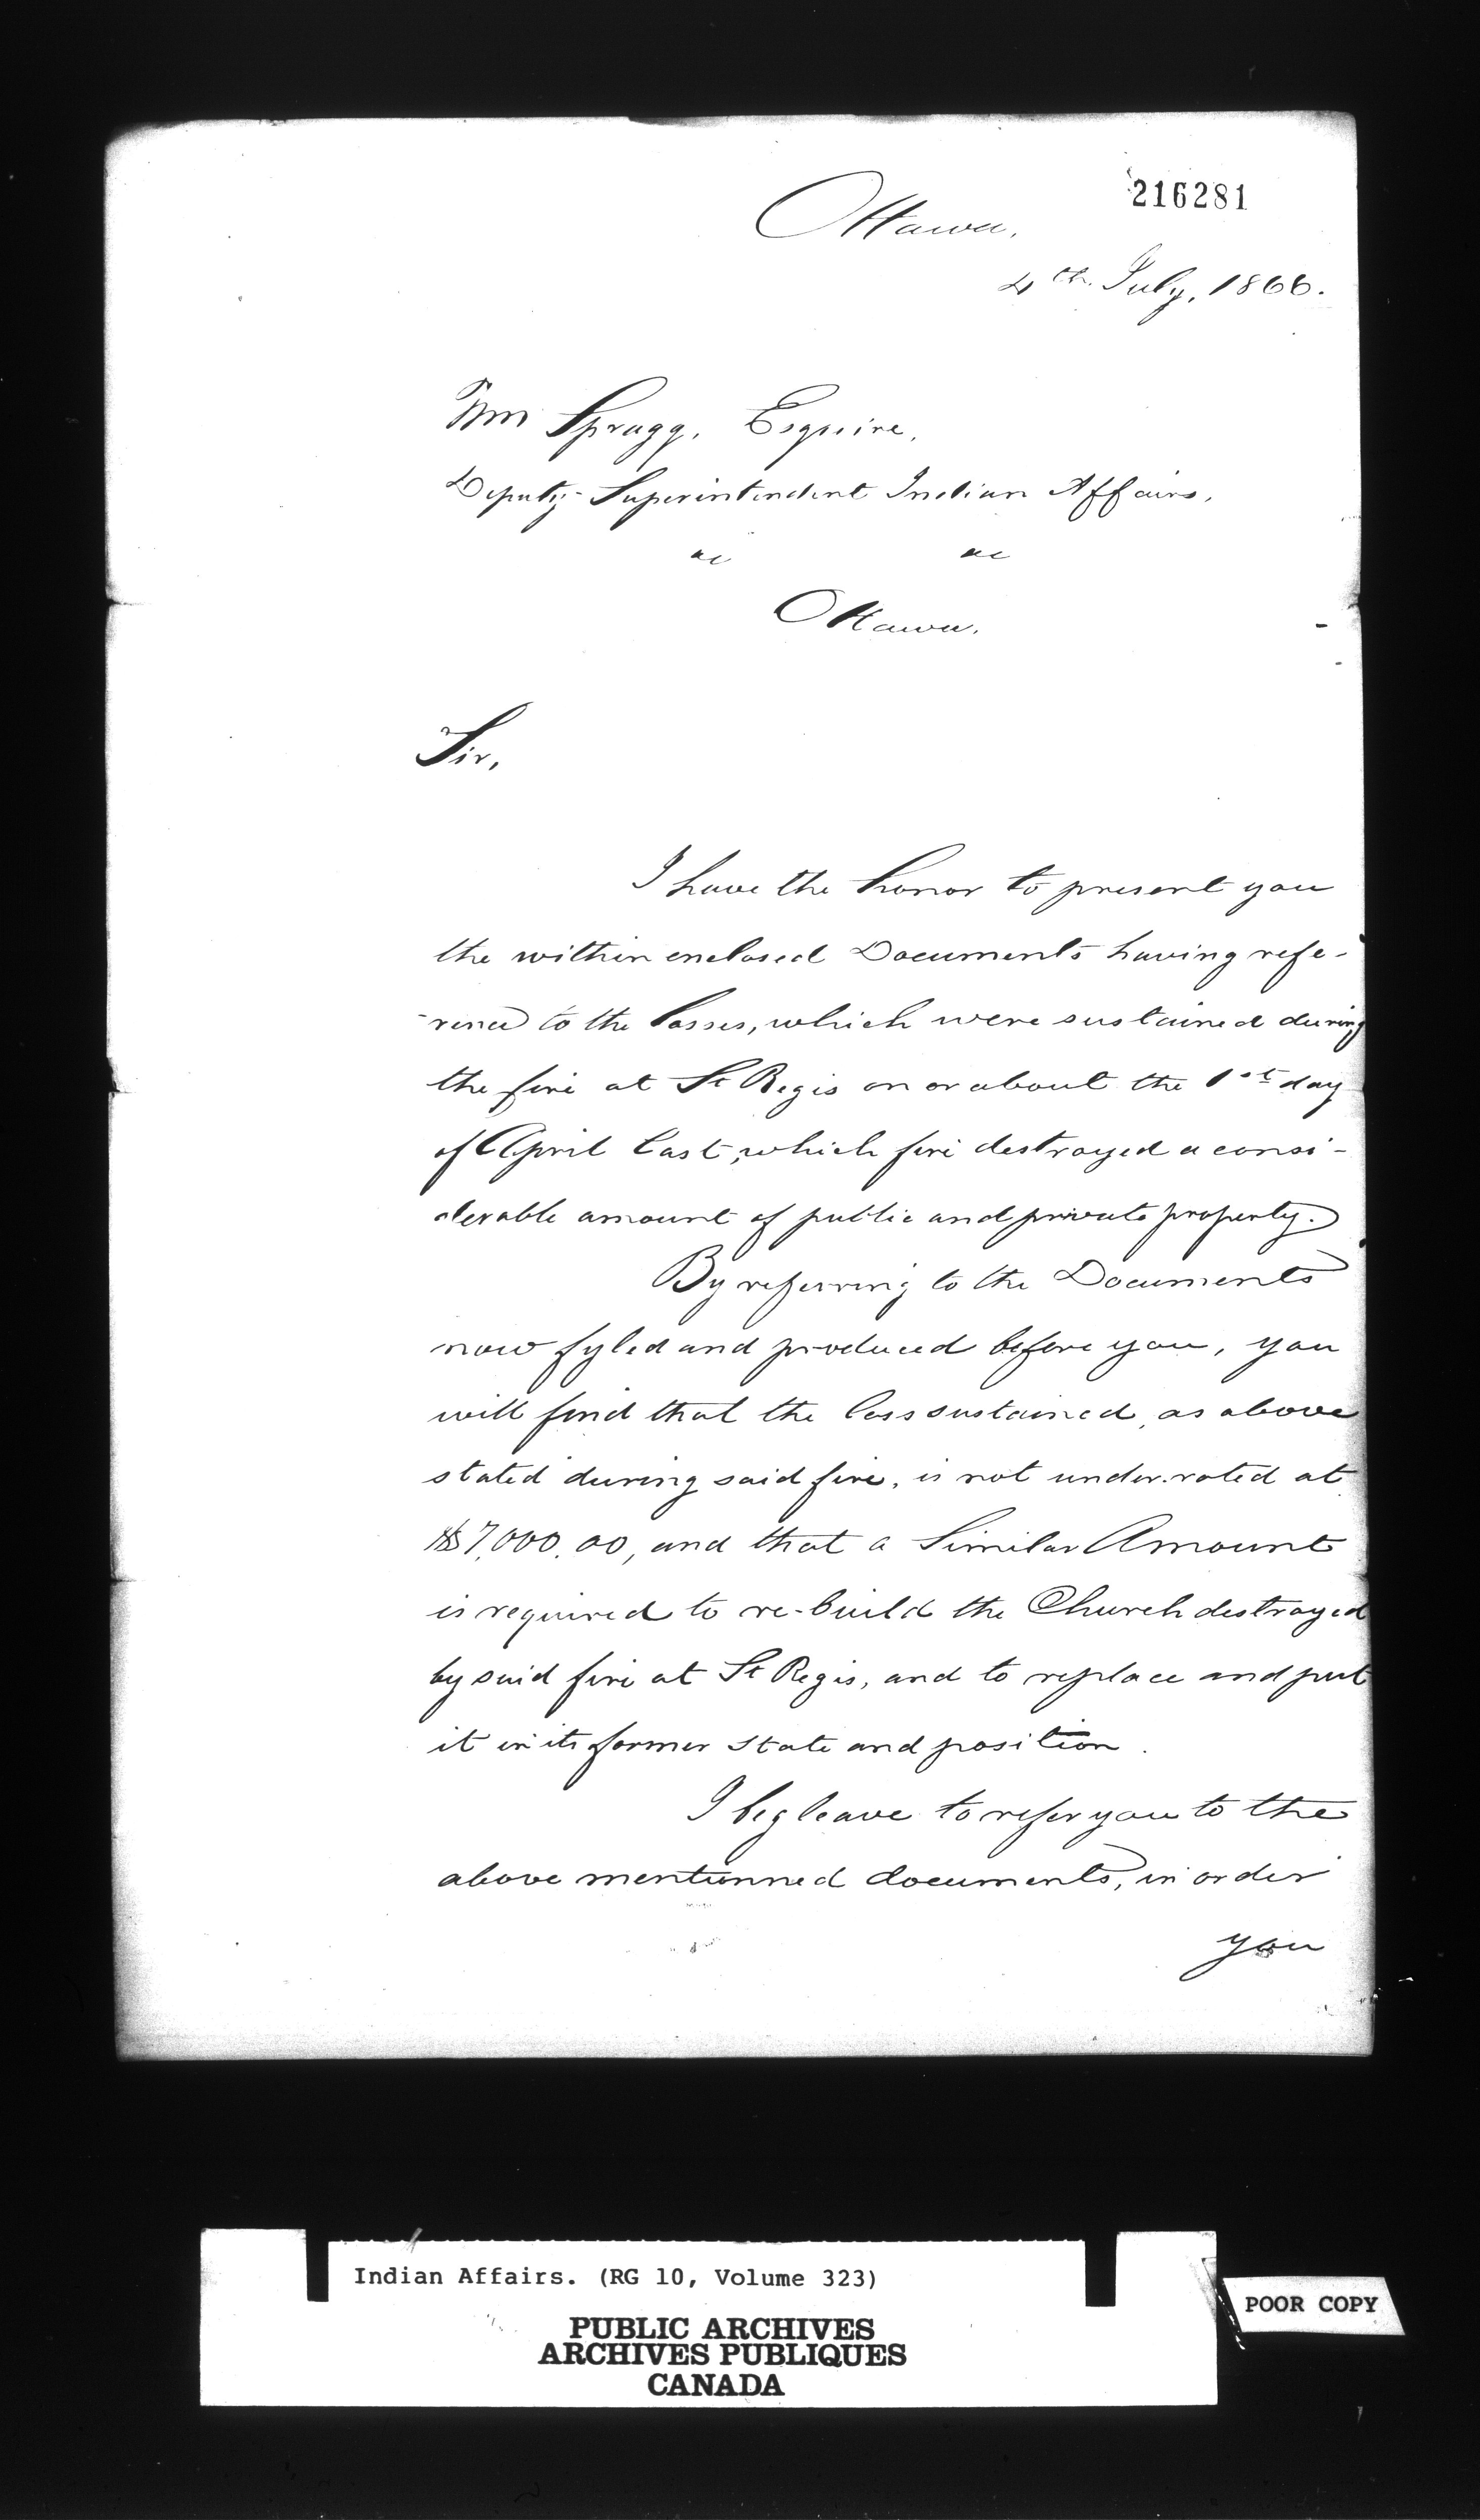 216281
Ottawa,
4th July, 1866.
Wm Spragg, Esquire,
Deputy-Superintendent Indian Affairs,
&c &c
Ottawa.
Sir,
I have the honor to present you
the within enclosed Documents having refe-
-rence to the losses, which were sustained during
the fire at St Regis on or about the 1st day
of April last, which fire destroyed a consi-
derable amount of public and private property.
By referring to the Documents
now fyled and produced before you, you
will find that the loss sustained, as above
stated during said fire, is not under-rated at
$7,000.00, and that a Similar Amount
is required to re-build the Church destroyed
by said fire at St Regis, and to replace and put
it in its former state and position.
I beg leave to refer you to the
above mentionned documents, in order
you
Indian Affairs. (RG 10, Volume 323)
PUBLIC ARCHIVES
ARCHIVES PUBLIQUES
CANADA
POOR COPY